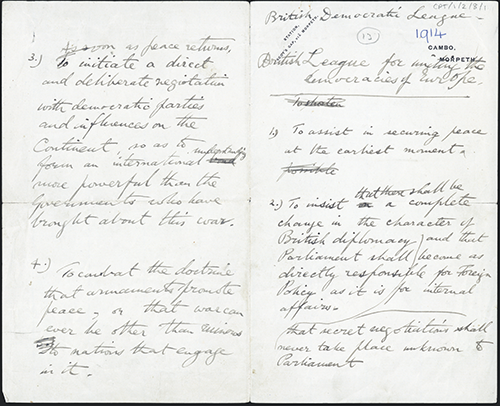 British Democratic League
CPT/1/2/3/1
(13)
1914
STATION,
CAMBO,
MORPETH.
British League for uniting the
democracies of Europe.
1) To assist in securing peace
at the earliest moment.
possible
2.) To insist that there shall be
a complete
change in the character of
British diplomacy, and that
Parliament shall become as
directly responsible for Foreign
Policy as it is for internal
affairs.
that secret negotiations shall
never take place unknown to
Parliament
As soon as peace returns,
3.) To initiate a direct
and deliberate negotiation
with democratic parties
and influences on the
Continent, so as to
form an international
more powerful than the
Governments who have
brought about this war.
4.) To combat the doctrine
that armaments promote
peace, or that war can
ever be other than
to nations that engage
in it.